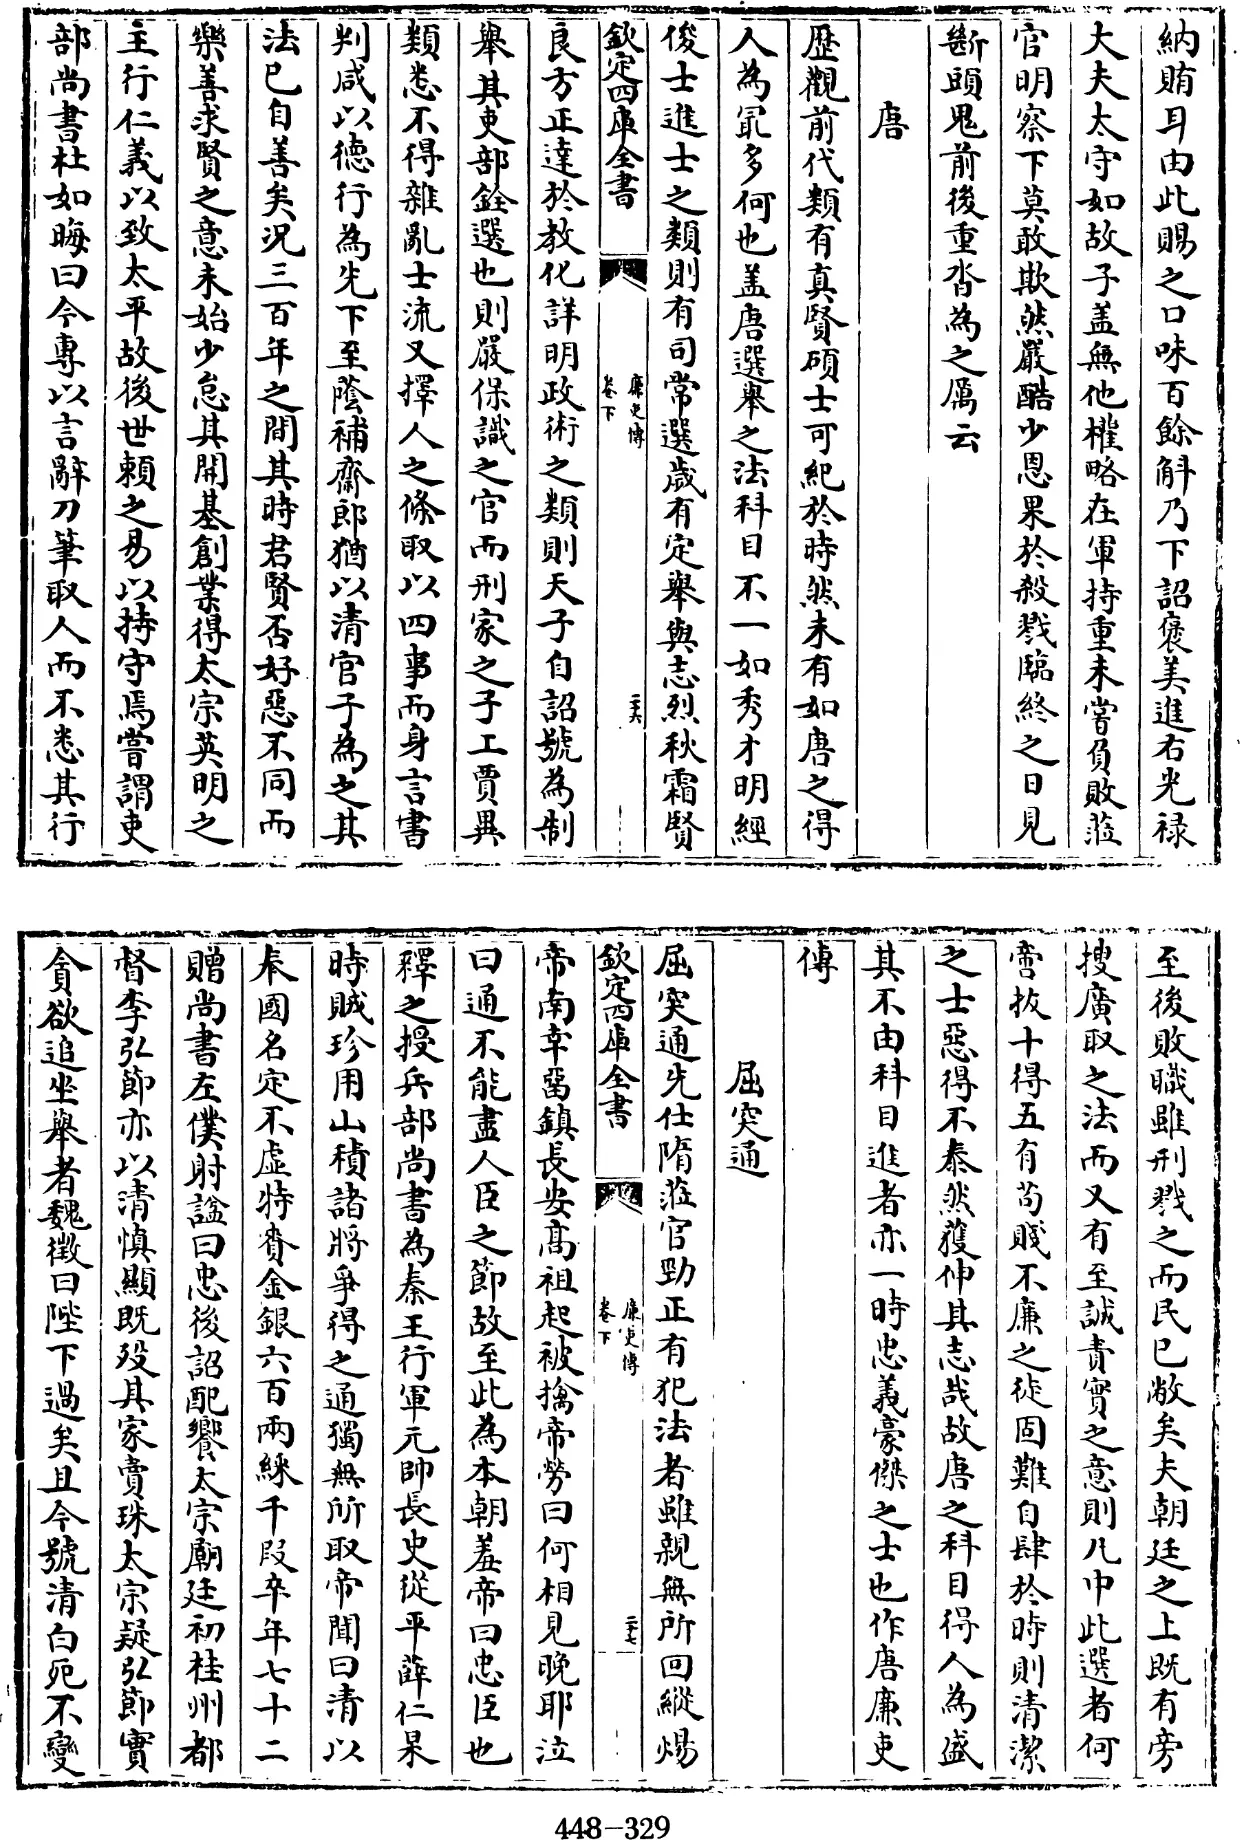 納賄耳由此賜之口味百餘斛乃下詔褒美進右光禄
大夫太守如故子盖無他權略在軍持重未嘗負敗蒞
官明察下莫敢欺然嚴酷少恩果於殺戮臨終之日見
斷頭鬼前後重沓為之厲云
唐
歷觀前代類有真賢碩士可紀於時然未有如唐之得
人為冣多何也盖唐選舉之法科目不一如秀才明經
俊士進士之類則有司常選歲有定舉與志烈秋霜賢
欽定四庫全書
廉吏傳
卷下
三六
良方正達於教化詳明政術之類則天子自詔號為制
舉其吏部銓選也則嚴保識之官而刑家之子工賈異
類悉不得雜亂士流又擇人之條取以四事而身言書
判咸以德行為先下至蔭補齋郎猶以清官子為之其
法已自善矣况三百年之間其時君賢否好惡不同而
樂善求賢之意未始少怠其開基創業得太宗英明之
主行仁義以致太平故後世賴之易以持守焉嘗謂吏
部尚書杜如晦曰今專以言辭刀筆取人而不悉其行
至後敗職雖刑戮之而民已敝矣夫朝廷之上既有旁
搜廣取之法而又有至誠責實之意則凡中此選者何
啻拔十得五有苟賤不廉之徒固難自肆於時則清潔
之士惡得不泰然獲伸其志哉故唐之科目得人為盛
其不由科目進者亦一時忠義豪傑之士也作唐廉吏
傳
屈突通
屈突通先仕隋蒞官勁正有犯法者雖親無所回縱煬
欽定四庫全書
廉吏傳
卷下
三七
帝南幸留鎮長安高祖起被擒帝勞曰何相見晚耶泣
曰通不能盡人臣之節故至此為本朝羞帝曰忠臣也
釋之授兵部尚書為秦王行軍元帥長史從平薛仁杲
時賊珍用山積諸將爭得之通獨無所取帝聞曰清以
奉國名定不虛特賚金銀六百兩綵千段卒年七十二
贈尚書左僕射諡曰忠後詔配饗太宗廟廷初桂州都
督李弘節亦以清慎顯既歿其家賣珠太宗疑弘節實
貪欲追坐舉者魏徵曰陛下過矣且今號清白死不變
448-329